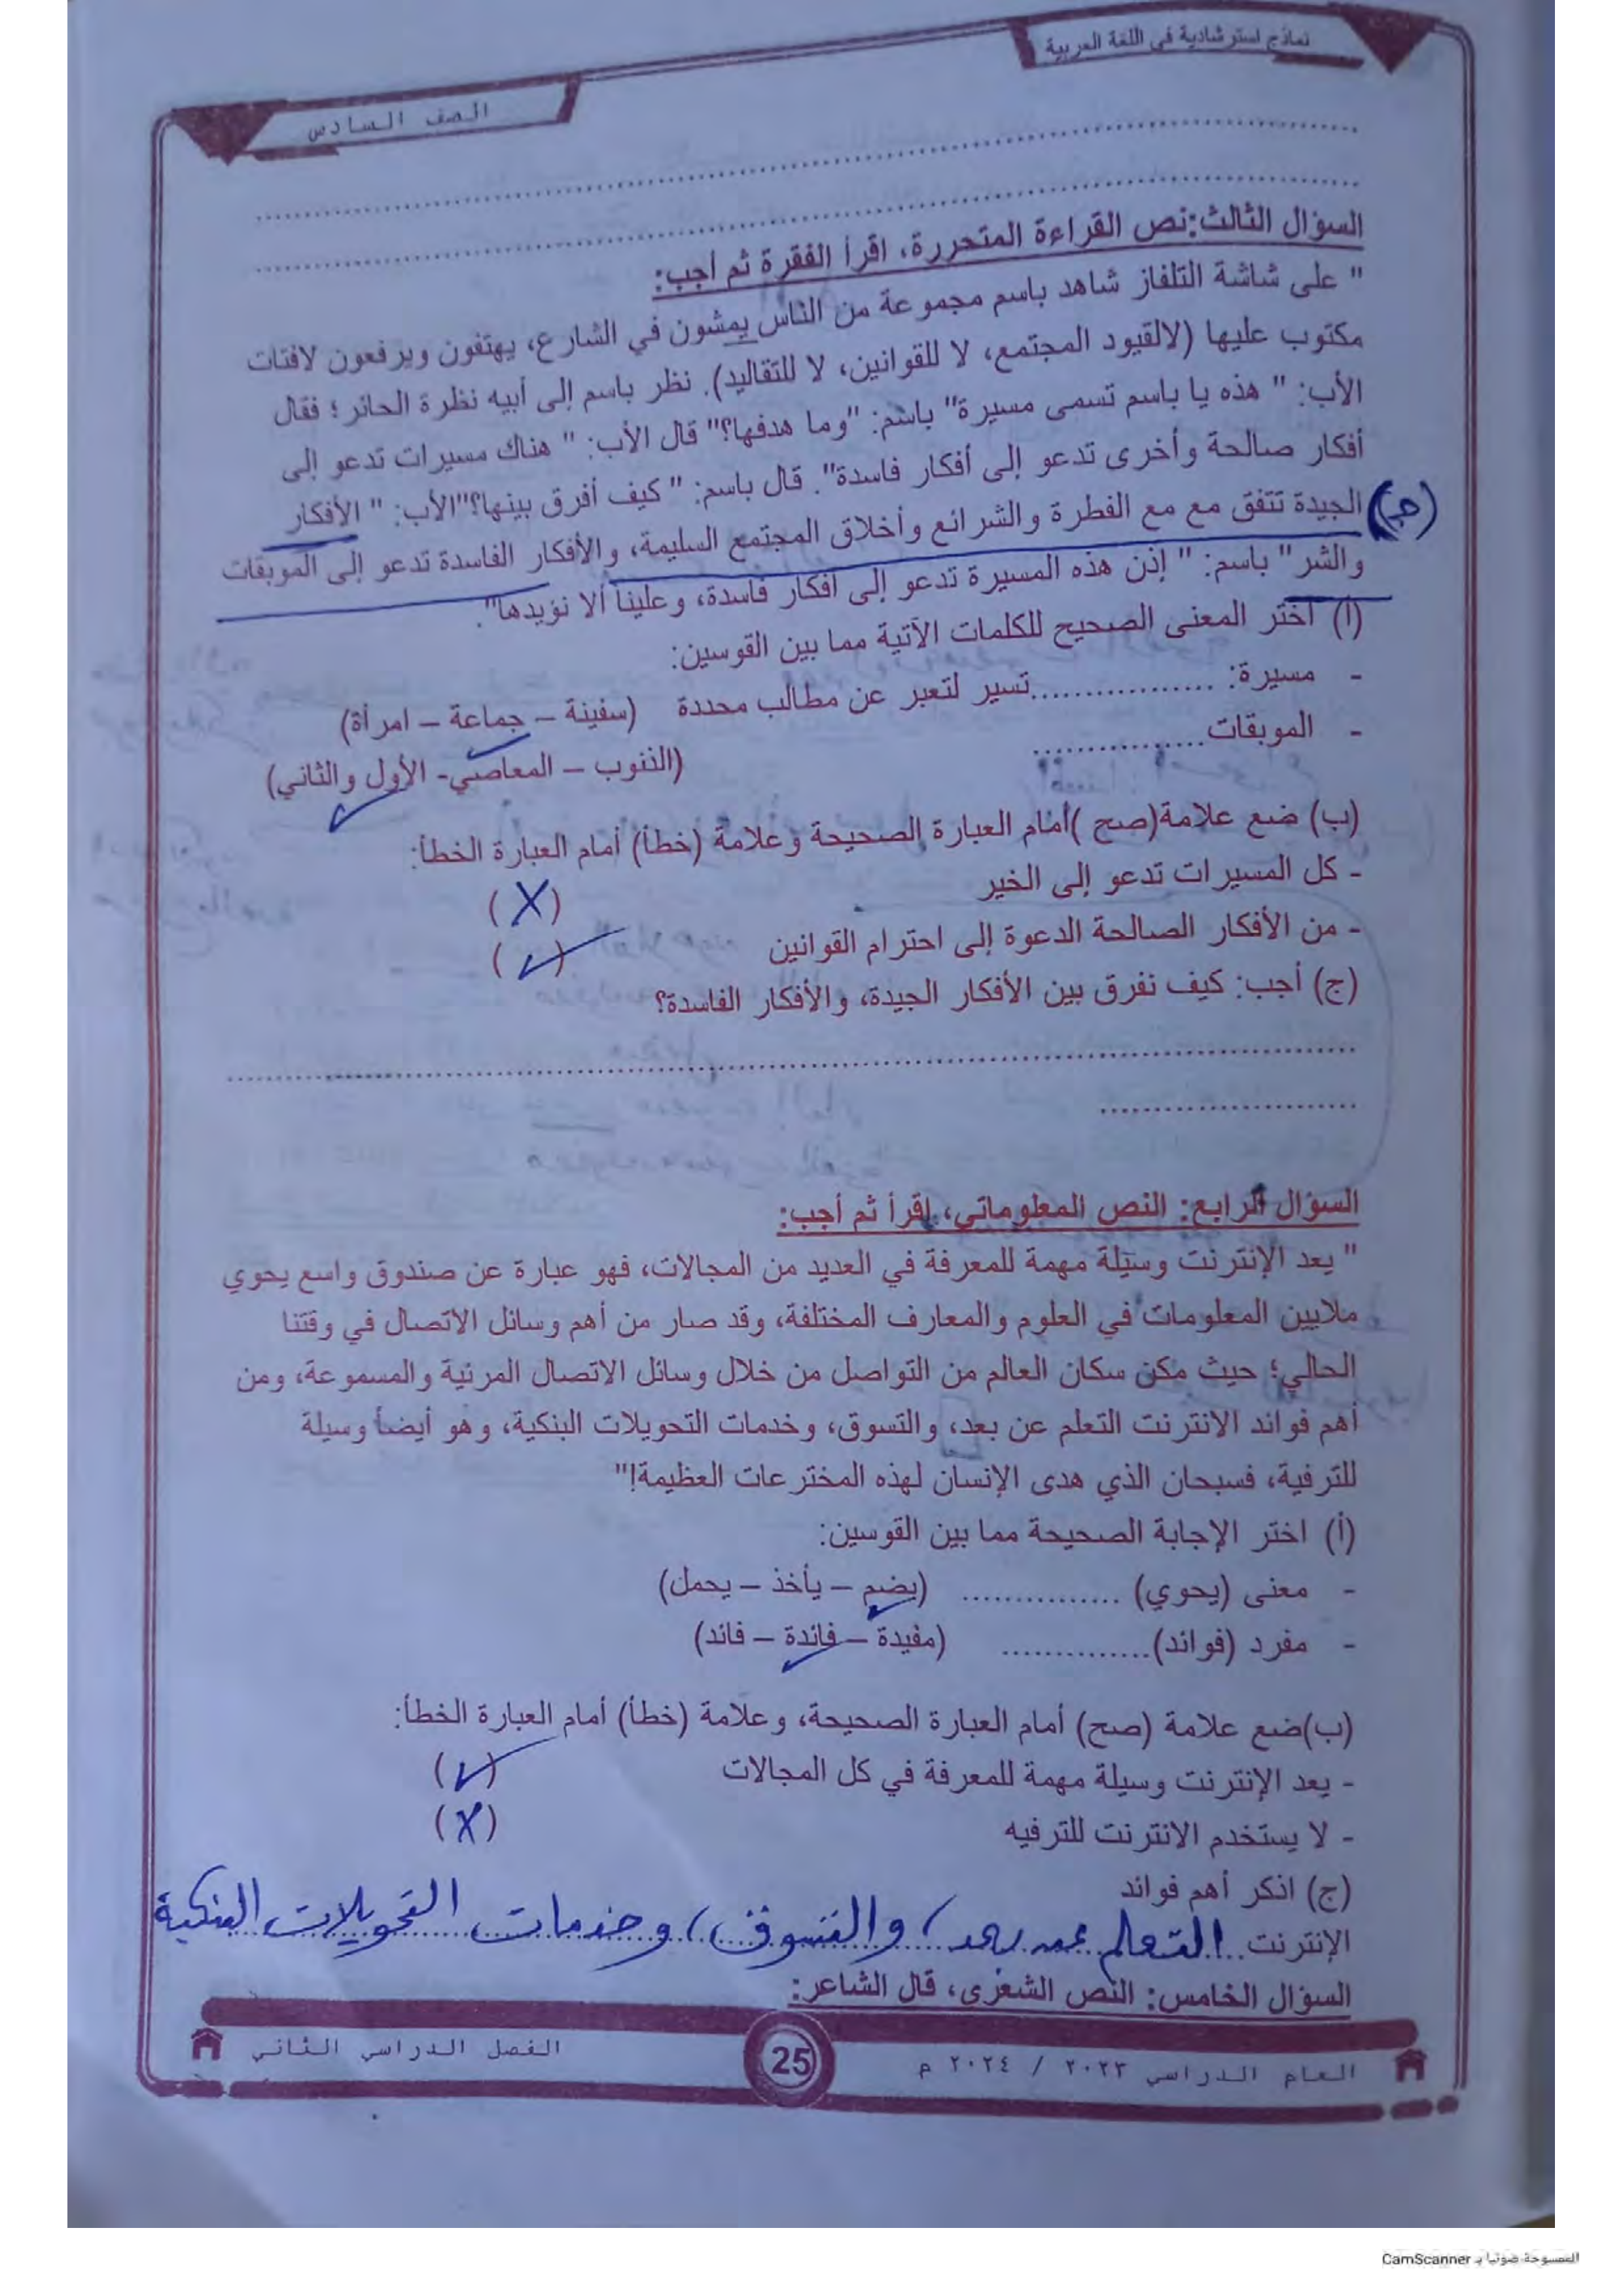 نماذج استرشادية في اللغة العربية
الصف السادس
السؤال الثالث: نص القراءة المتحررة، اقرأ الفقرة ثم أجب:
" على شاشة التلفاز شاهد باسم مجموعة من الناس يمشون في الشارع، يهتفون ويرفعون لافتات
مكتوب عليها (لالقيود المجتمع، لا للقوانين، لا للتقاليد). نظر باسم إلى أبيه نظرة الحائر؛ فقال
الأب: " هذه يا باسم تسمى مسيرة" باسم: "وما هدفها؟" قال الأب: " هناك مسيرات تدعو إلى
أفكار صالحة وأخرى تدعو إلى أفكار فاسدة". قال باسم: " كيف أفرق بينها؟"الأب: " الأفكار
(جـ) الجيدة تتفق مع مع الفطرة والشرائع وأخلاق المجتمع السليمة، والأفكار الفاسدة تدعو إلى الموبقات
والشر" باسم: " إذن هذه المسيرة تدعو إلى أفكار فاسدة، وعلينا ألا نؤيدها".
(أ) اختر المعنى الصحيح للكلمات الآتية مما بين القوسين:
- مسيرة: ..................تسير لتعبر عن مطالب محددة (سفينة – جماعة – امرأة)
- الموبقات................ (الذنوب – المعاصي- الأول والثاني)
(ب) ضع علامة(صح )أمام العبارة الصحيحة وعلامة (خطأ) أمام العبارة الخطأ:
- كل المسيرات تدعو إلى الخير (X)
- من الأفكار الصالحة الدعوة إلى احترام القوانين (✓)
(ج) أجب: كيف نفرق بين الأفكار الجيدة، والأفكار الفاسدة؟
السؤال الرابع: النص المعلوماتي، اقرأ ثم أجب:
" يعد الإنترنت وسيلة مهمة للمعرفة في العديد من المجالات، فهو عبارة عن صندوق واسع يحوي
ملايين المعلومات في العلوم والمعارف المختلفة، وقد صار من أهم وسائل الاتصال في وقتنا
الحالي؛ حيث مكن سكان العالم من التواصل من خلال وسائل الاتصال المرئية والمسموعة، ومن
أهم فوائد الانترنت التعلم عن بعد، والتسوق، وخدمات التحويلات البنكية، وهو أيضاً وسيلة
للترفية، فسبحان الذي هدى الإنسان لهذه المخترعات العظيمة!"
(أ) اختر الإجابة الصحيحة مما بين القوسين:
- معنى (يحوي) ............... (يضم – يأخذ – يحمل)
- مفرد (فوائد).............. (مفيدة – فائدة – فائد)
(ب)ضع علامة (صح) أمام العبارة الصحيحة، وعلامة (خطأ) أمام العبارة الخطأ:
- يعد الإنترنت وسيلة مهمة للمعرفة في كل المجالات (✓)
- لا يستخدم الانترنت للترفيه (X)
(ج) اذكر أهم فوائد
الإنترنت التعلم عن بعد، والتسوق، وخدمات التحويلات البنكية
السؤال الخامس: النص الشعري، قال الشاعر:
العام الدراسي ٢٠٢٣ / ٢٠٢٤ م
25
الفصل الدراسي الثاني
الممسوحة ضوئيا بـ CamScanner